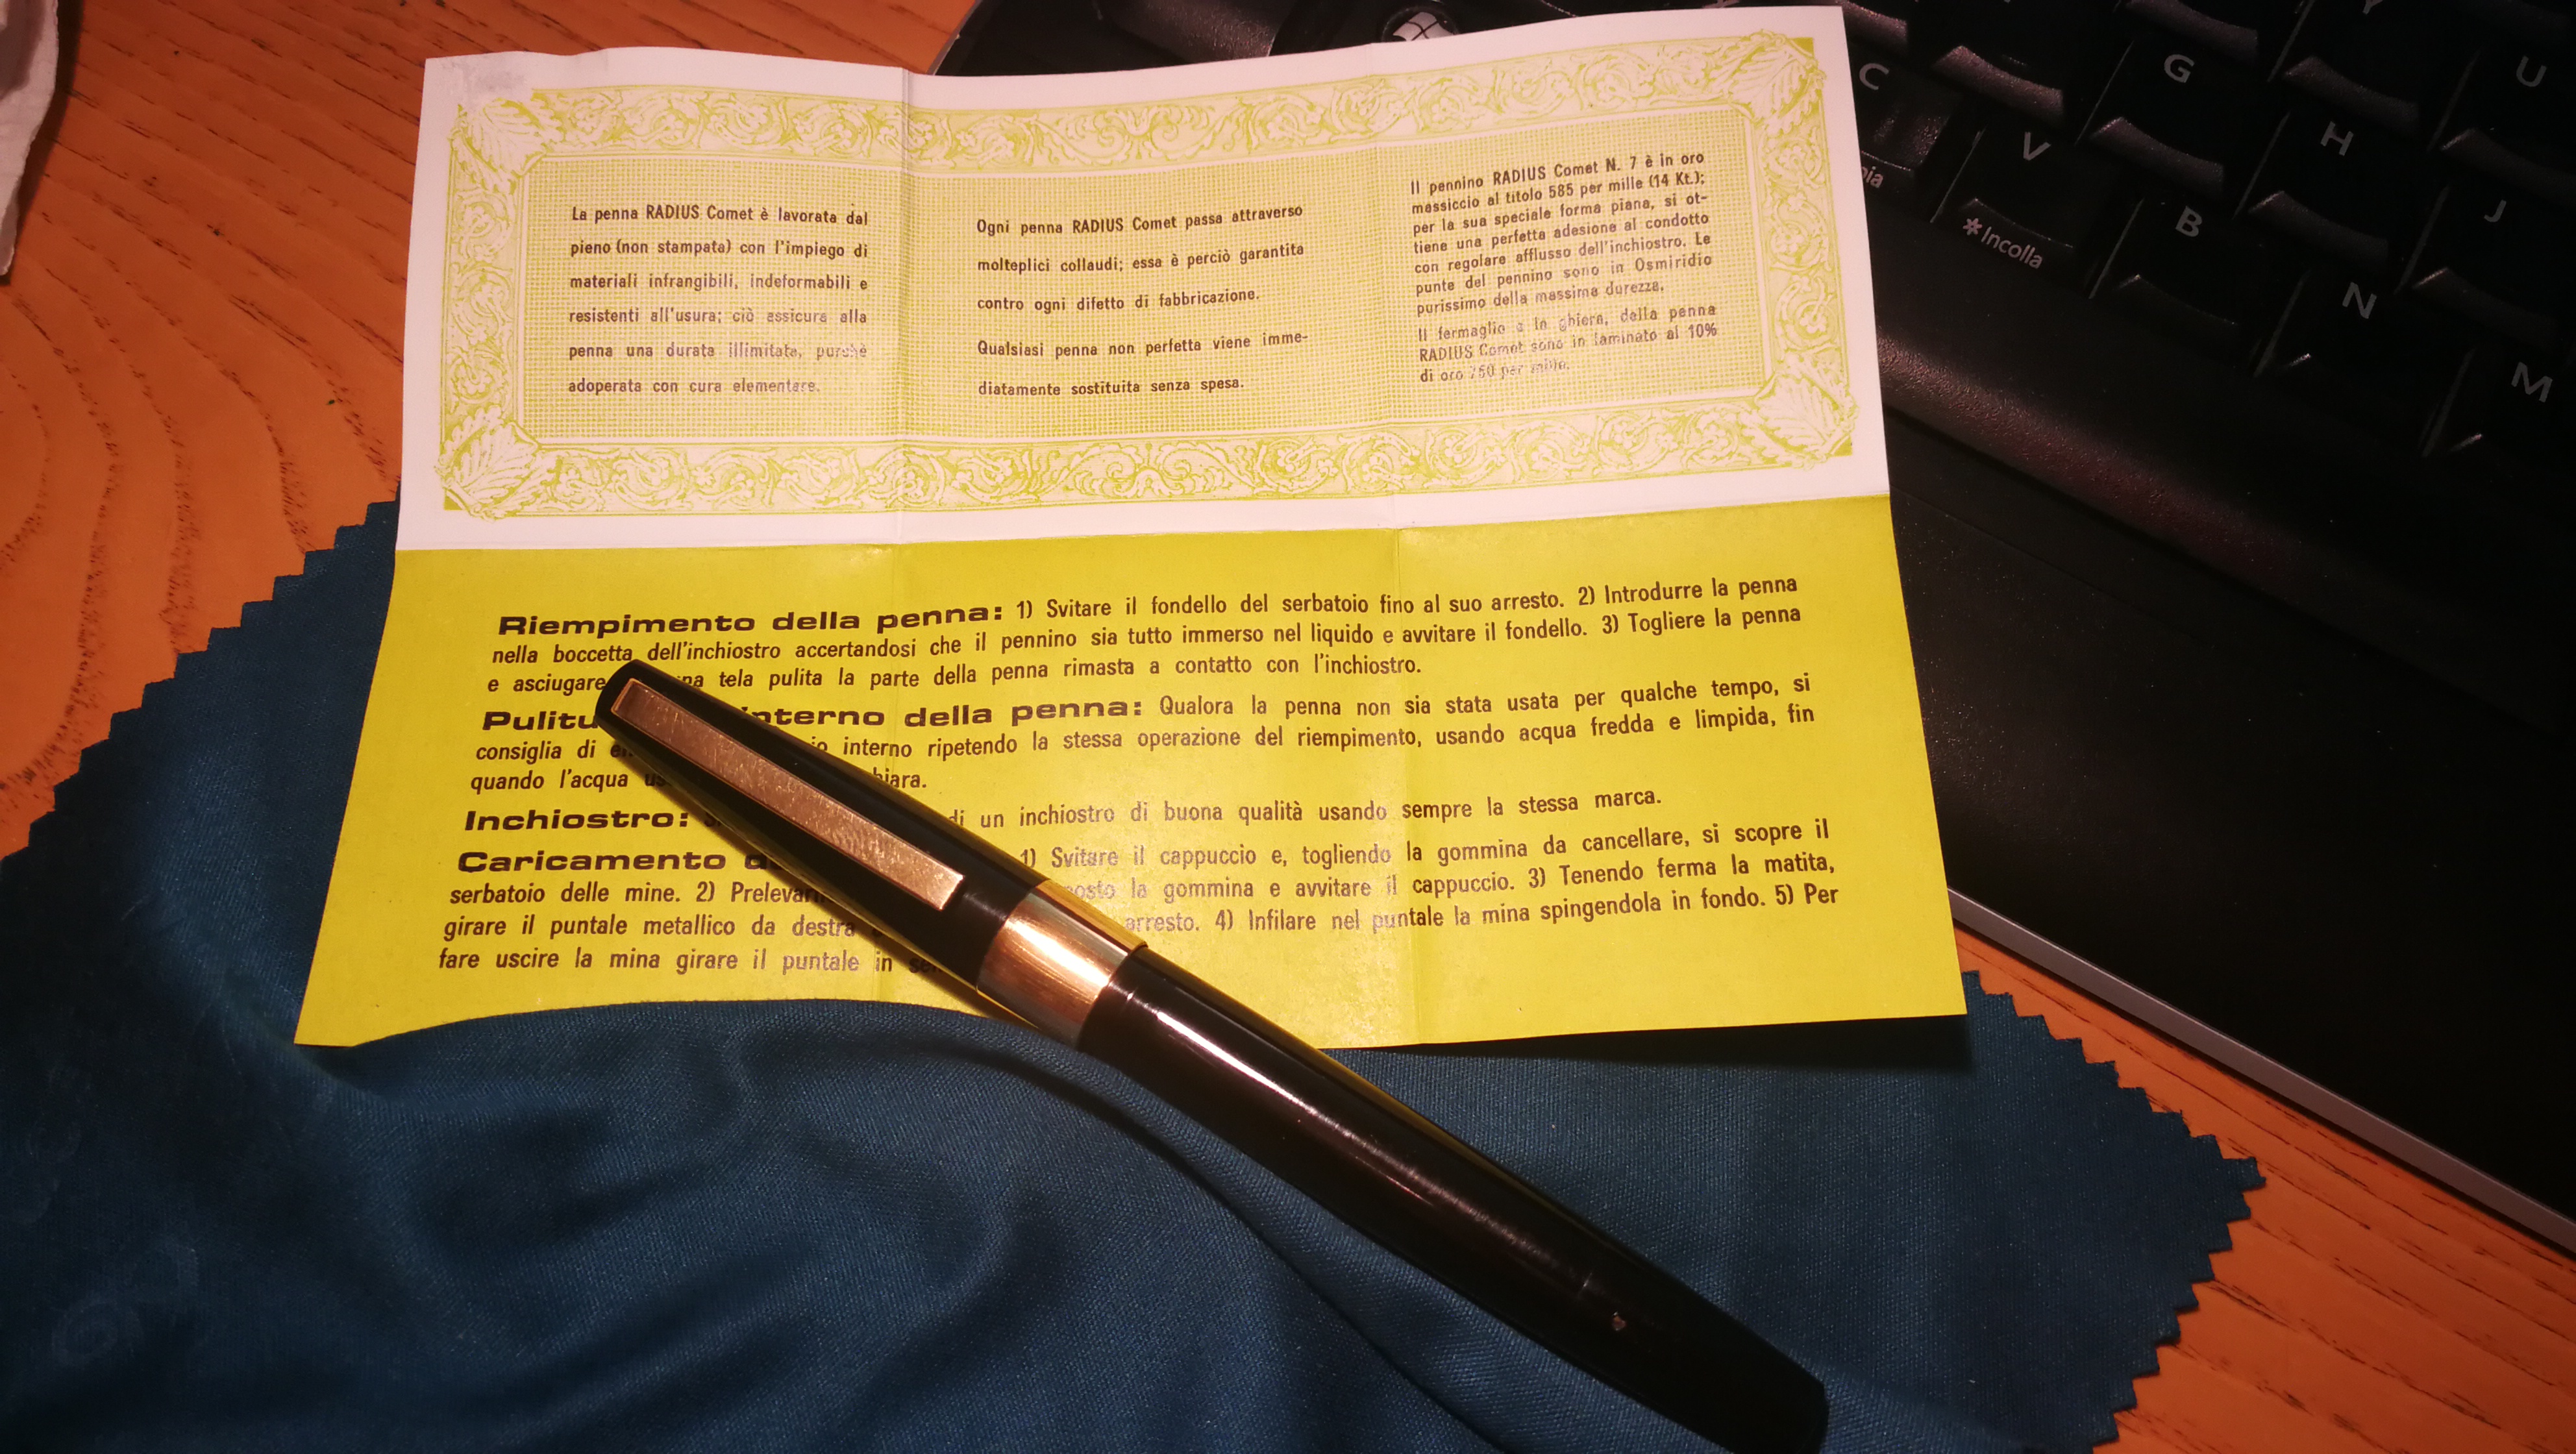 La penna RADIUS Comet è lavorata dal
pieno (non stampata) con l'impiego di
materiali infrangibili, indeformabili e
resistenti all'usura; ciò assicura alla
penna una durata illimitata, purchè
adoperata con cura elementare.
Ogni penna RADIUS Comet passa attraverso
molteplici collaudi; essa è perciò garantita
contro ogni difetto di fabbricazione.
Qualsiasi penna non perfetta viene imme-
diatamente sostituita senza spesa.
Il pennino RADIUS Comet N. 7 è in oro
massiccio al titolo 585 per mille (14 Kt.);
per la sua speciale forma piana, si ot-
tiene una perfetta adesione al condotto
con regolare afflusso dell'inchiostro. Le
punte del pennino sono in Osmiridio
purissimo della massima durezza.
Il fermaglio e la ghiera, della penna
RADIUS Comet sono in laminato al 10%
di oro 750 per mille.
Riempimento della penna: 1) Svitare il fondello del serbatoio fino al suo arresto. 2) Introdurre la penna
nella boccetta dell'inchiostro accertandosi che il pennino sia tutto immerso nel liquido e avvitare il fondello. 3) Togliere la penna
e asciugare tela pulita la parte della penna rimasta a contatto con l'inchiostro.
Pulitu interno della penna: Qualora la penna non sia stata usata per qualche tempo, si
consiglia di interno ripetendo la stessa operazione del riempimento, usando acqua fredda e limpida, fin
quando l'acqua hiara.
Inchiostro: di un inchiostro di buona qualità usando sempre la stessa marca.
Caricamento 1) Svitare il cappuccio e, togliendo la gommina da cancellare, si scopre il
serbatoio delle mine. 2) Preleva posto la gommina e avvitare il cappuccio. 3) Tenendo ferma la matita,
girare il puntale metallico da destra arresto. 4) Infilare nel puntale la mina spingendola in fondo. 5) Per
fare uscire la mina girare il puntale in
C
V
G
B
H
N
J
U
M
*Incolla